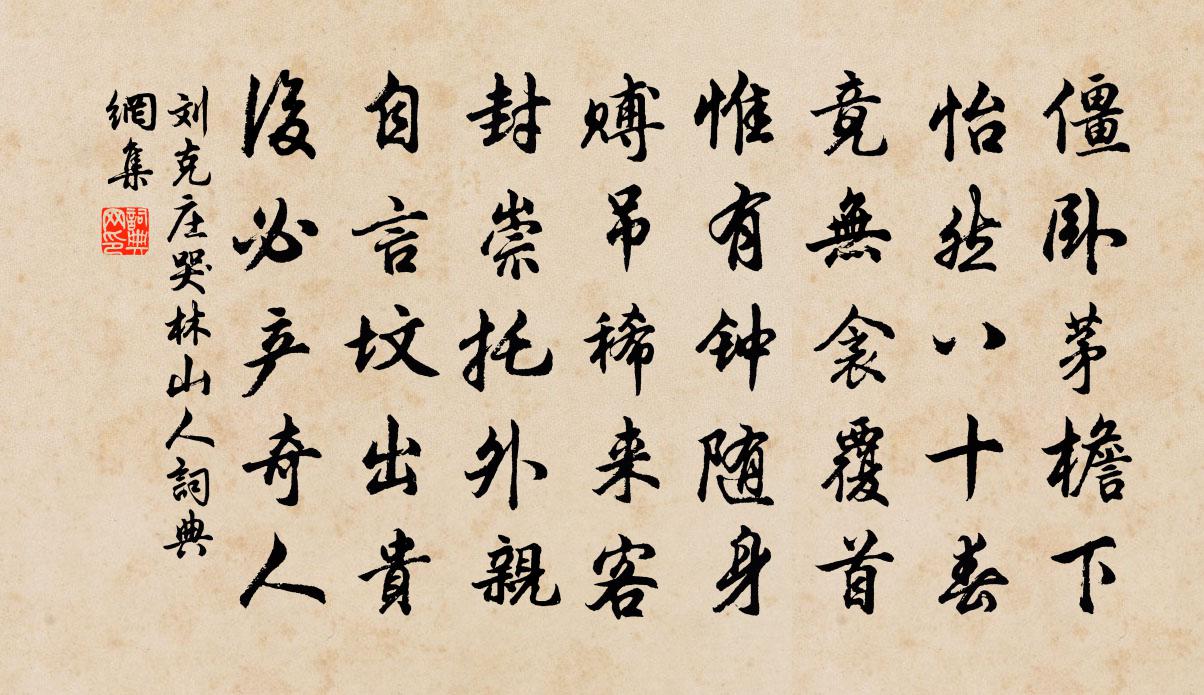 僵卧茅檐下
怡然八十春
竟無衾覆首
惟有钟随身
赙吊稀来客
封崇托外親
自言坟出貴
後必产奇人
刘克庄哭林山人詞典
網集
詞典网印